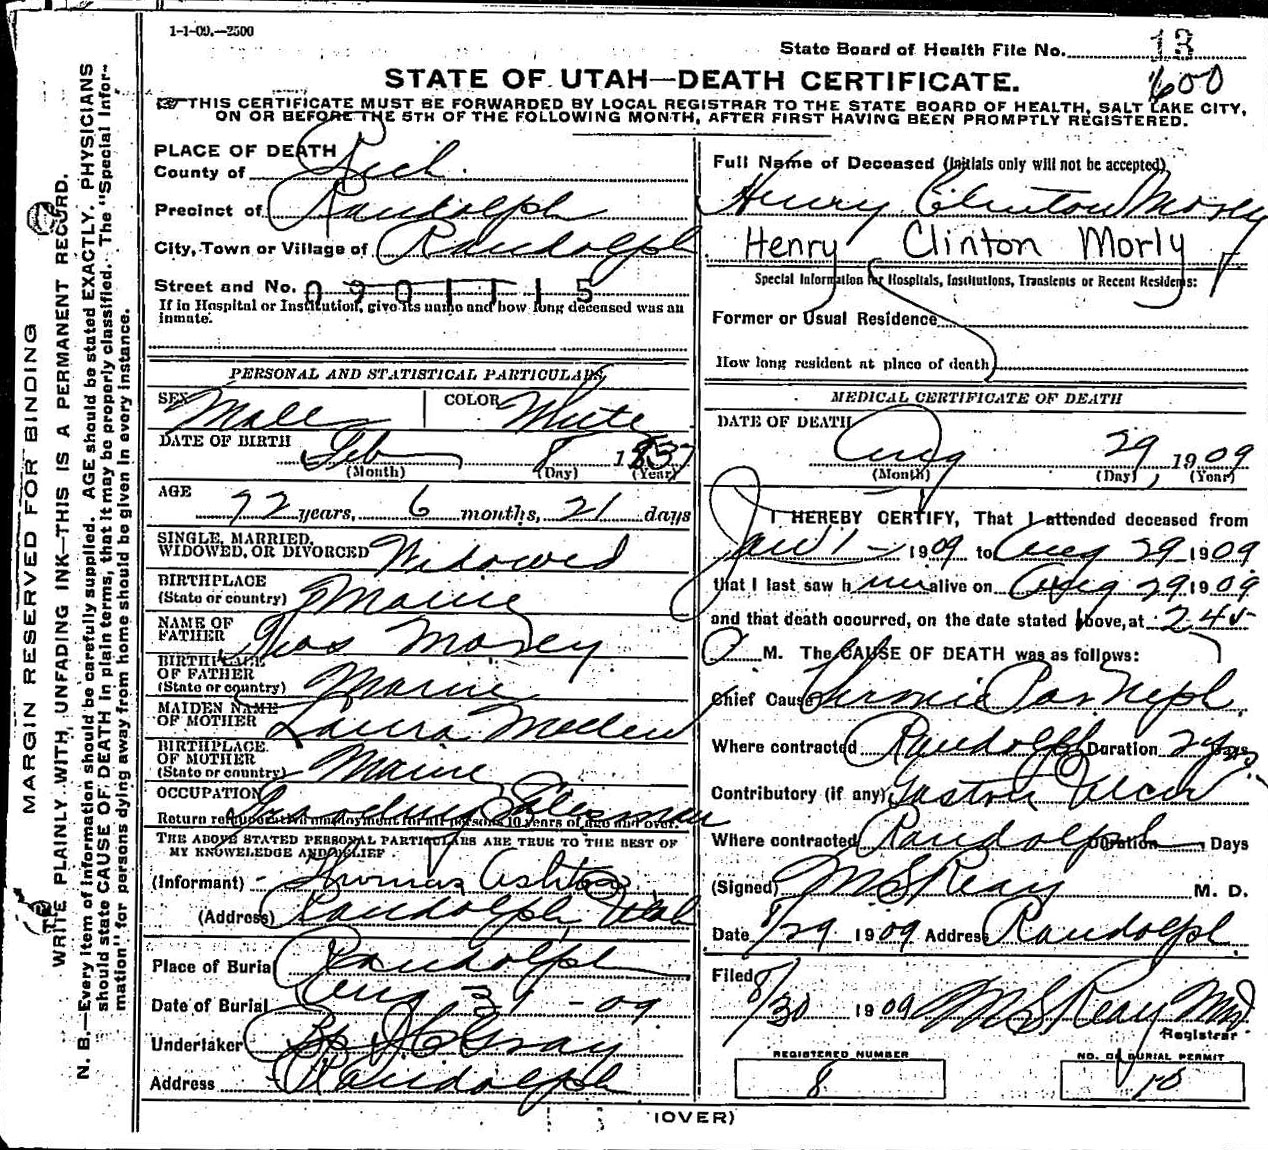 1-1-09.—2500
State Board of Health File No. 13
600
STATE OF UTAH—DEATH CERTIFICATE.
THIS CERTIFICATE MUST BE FORWARDED BY LOCAL REGISTRAR TO THE STATE BOARD OF HEALTH, SALT LAKE CITY,
ON OR BEFORE THE 5TH OF THE FOLLOWING MONTH, AFTER FIRST HAVING BEEN PROMPTLY REGISTERED.
MARGIN RESERVED FOR BINDING
WRITE PLAINLY WITH UNFADING INK—THIS IS A PERMANENT RECORD.
N. B.—Every item of information should be carefully supplied. AGE should be stated EXACTLY. PHYSICIANS
should state CAUSE OF DEATH in plain terms, that it may be properly classified. The "Special Infor-
mation" for persons dying away from home should be given in every instance.
PLACE OF DEATH
County of Rich
Precinct of Randolph
City, Town or Village of Randolph
Street and No. 0901115
If in Hospital or Institution, give its name and how long deceased was an
inmate.
PERSONAL AND STATISTICAL PARTICULARS
SEX Male COLOR White
DATE OF BIRTH Feb 8 1837
(Month) (Day) (Year)
AGE 72 years, 6 months, 21 days
SINGLE, MARRIED,
WIDOWED, OR DIVORCED Widowed
BIRTHPLACE
(State or country) Maine
NAME OF
FATHER Thos Morey
BIRTHPLACE
OF FATHER
(State or country) Maine
MAIDEN NAME
OF MOTHER Laura
BIRTHPLACE
OF MOTHER
(State or country) Maine
OCCUPATION Salesman
Return remunerative employment for all persons 10 years of age and over.
THE ABOVE STATED PERSONAL PARTICULARS ARE TRUE TO THE BEST OF
MY KNOWLEDGE AND BELIEF
(Informant) Thomas Ashton
(Address) Randolph Utah
Place of Burial Randolph
Date of Burial Aug 31 - 09
Undertaker Gray
Address Randolph
Full Name of Deceased (Initials only will not be accepted)
Henry Clinton Morly
Henry Clinton Morly
Special Information for Hospitals, Institutions, Transients or Recent Residents:
Former or Usual Residence
How long resident at place of death
MEDICAL CERTIFICATE OF DEATH
DATE OF DEATH
Aug 29, 1909
(Month) (Day) (Year)
I HEREBY CERTIFY, That I attended deceased from
Jan 1 - 1909 to Aug 29 1909
that I last saw him alive on Aug 29 1909
and that death occurred, on the date stated above, at 2 45
M. The CAUSE OF DEATH was as follows:
Chief Cause Chronic Par Neph
Where contracted Randolph Duration 2 yrs Days
Contributory (if any) Gastric Ulcer
Where contracted Randolph Duration Days
(Signed) M S Reay M. D.
Date 8/29 1909 Address Randolph
Filed
8/30 1909 M S Reay MD
Registrar
REGISTERED NUMBER
8
NO. OF BURIAL PERMIT
10
(OVER)